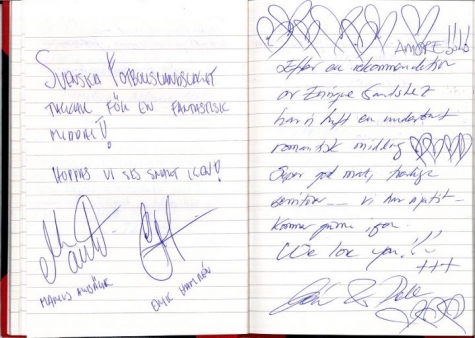 SVENSKA FOTBOLLSLANDSLAGET
TACKAR FÖR EN FANTASTISK
MIDDAG!!
HOPPAS VI SES SNART IGEN!
MARCUS ALLBÄCK
ERIK HAMRÉN
AMORE!!!
Efter en rekommendation
av Enrique
har vi haft en underbart
romantisk middag
Super god mat, trevlige
servitör vi har njutit
Kommer gärna igen.
We love you!!
+++